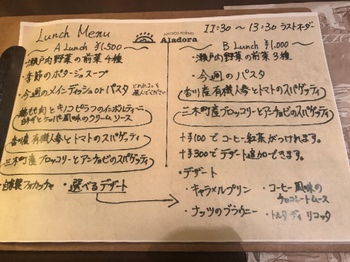 Lunch Menu
Aladora
11:30 ~ 13:30 ラストオーダー
A Lunch ¥1,500
・瀬戸内野菜の前菜4種
・季節のポタージュスープ
・今週のメインディッシュ or パスタ
クリームソース
香川産有機人参とトマトのスパゲッティ
三木町産ブロッコリーとアンチョビのスパゲッティ
・自家製フォカッチャ
・選べるデザート
B Lunch ¥1,000
・瀬戸内野菜の前菜3種
・今週のパスタ
香川産有機人参とトマトのスパゲッティ
三木町産ブロッコリーとアンチョビのスパゲッティ
+¥100でコーヒー、紅茶がつけれます。
+¥300でデザート追加できます。
・デザート
・キャラメルプリン
・コーヒー風味のチョコレートムース
・ナッツのブラウニー
・トルタ ディ リコッタ